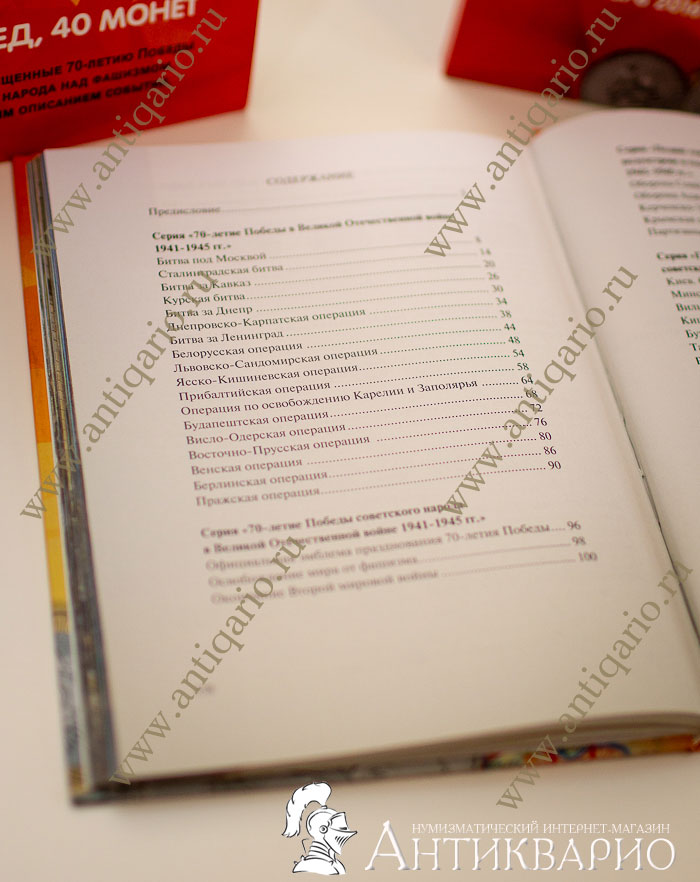 ЕД, 40 МОНЕТ
ЩЕННЫЕ 70-ЛЕТИЮ Победы
НАРОДА НАД ФАШИЗМОМ
ИМ ОПИСАНИЕМ СОБЫТИЙ
2016
СОДЕРЖАНИЕ
Предисловие
Серия «70-летие Победы в Великой Отечественной войне
1941-1945 гг.»
Битва под Москвой 8
Сталинградская битва 14
Битва за Кавказ 20
Курская битва 26
Битва за Днепр 30
Днепровско-Карпатская операция 34
Битва за Ленинград 38
Белорусская операция 44
Львовско-Сандомирская операция 48
Ясско-Кишиневская операция 54
Прибалтийская операция 58
Операция по освобождению Карелии и Заполярья 64
Будапештская операция 68
Висло-Одерская операция 72
Восточно-Прусская операция 76
Венская операция 80
Берлинская операция 86
Пражская операция 90
Серия «70-летие Победы советского народа
в Великой Отечественной войне 1941-1945 гг.»
Официальная эмблема празднования 70-летия Победы 96
Освобождение мира от фашизма 98
Окончание Второй мировой войны 100
www.antiqario.ru
www.antiqario.ru
www.antiqario.ru
www.antiqario.ru
www.antiqario.ru
www.antiqario.ru
НУМИЗМАТИЧЕСКИЙ ИНТЕРНЕТ-МАГАЗИН
АНТИКВАРИО